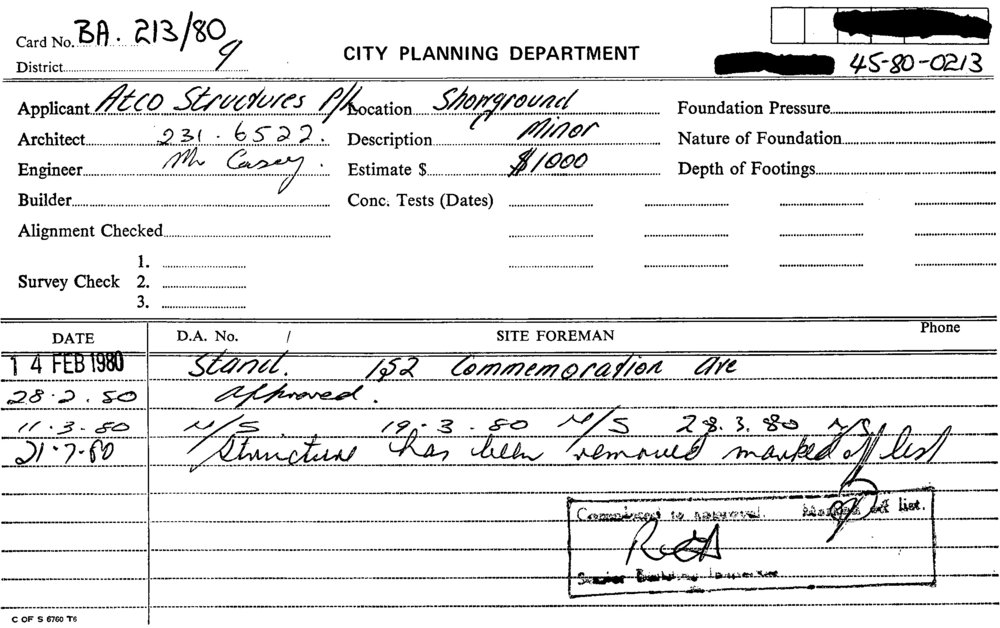 Card No. BA. 213/80
9
District
CITY PLANNING DEPARTMENT
45-80-0213
Applicant Atco Structures P/L
Location Showground
Foundation Pressure
Architect 231.6522.
Description Minor
Nature of Foundation
Engineer Mr Casey.
Estimate $ $1000
Depth of Footings
Builder
Conc. Tests (Dates)
Alignment Checked
Survey Check
1.
2.
3.
DATE D.A. No. / SITE FOREMAN Phone
14 FEB 1980 Stand. 1$2 Commemoration Ave
28.2.80 approved.
11.3.80 N/S 19.3.80 N/S 28.3.80 N/S.
21.7.80 Structure has been removed marked off list
Completed to approval. Marked off list.
Senior Building Inspector
C OF S 6760 T6